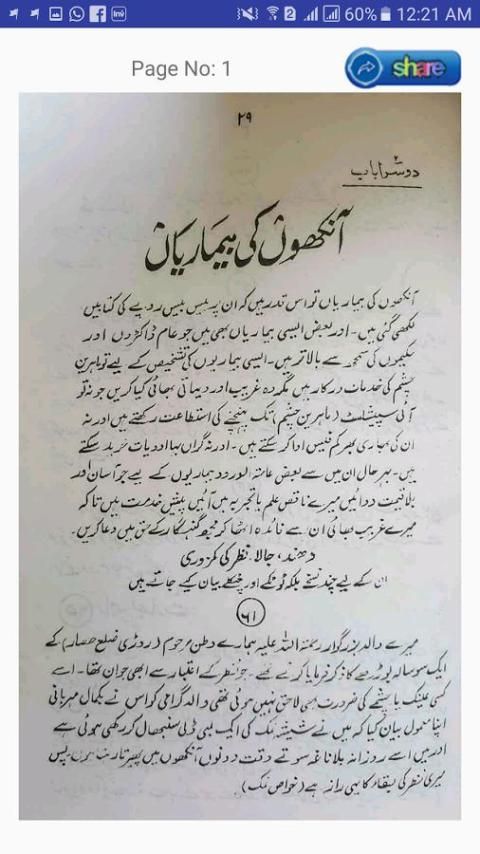 60% 12:21 AM
Page No: 1
share
۲۹
دوسرا باب
آنکھوں کی بیماریاں
آنکھوں کی بیماریاں تو اس قدر ہیں کہ ان پر بیس بیس روپے کی کتابیں
لکھی گئی ہیں۔ اور بعض ایسی بیماریاں بھی ہیں جو عام ڈاکٹروں اور
حکیموں کی سمجھ سے بالاتر ہیں۔ ایسی بیماریوں کی تشخیص کے لیے تو ماہرین
چشم کی خدمات درکار ہیں مگر وہ غریب اور دیہاتی بھائی کیا کریں جو نہ تو
آئی سپیشلسٹ (ماہرین چشم) تک پہنچنے کی استطاعت رکھتے ہیں اور نہ
ان کی بھاری بھر کم فیس ادا کر سکتے ہیں۔ اور نہ گراں بہا ادویات خرید سکتے
ہیں۔ بہرحال ان میں سے بعض عامتہ الورود بیماریوں کے لیے جو آسان اور
بلا قیمت دوائیں میرے ناقص علم یا تجربہ میں آئیں پیش خدمت ہیں تاکہ
میرے غریب بھائی ان سے فائدہ اٹھا کر مجھ گنہگار کے حق میں دعا کریں۔
دھند، جالا، نظر کی کمزوری
ان کے لیے چند نسخے بلکہ ٹوٹکے اور چٹکلے بیان کیے جاتے ہیں
۶۱
میرے والد بزرگوار رحمتہ اللہ علیہ ہمارے وطن مرحوم (روڑی ضلع حصار) کے
ایک سو سالہ بوڑھے کا ذکر فرمایا کرتے تھے۔ جو نظر کے اعتبار سے ابھی جوان تھا۔ اسے
کسی عینک یا چشمے کی ضرورت ہی لاحق نہیں ہوئی تھی والد گرامی کو اس نے بکمال مہربانی
اپنا معمول بیان کیا کہ میں نے شیشہ نمک کی ایک لمبی ڈلی سنبھال کر رکھی ہوئی ہے
اور میں اسے روزانہ بلا ناغہ سوتے وقت دونوں آنکھوں میں پھیرتا رہتا ہوں بس
میری نظر کی بقاء کا یہی راز ہے (خواص نمک)۔